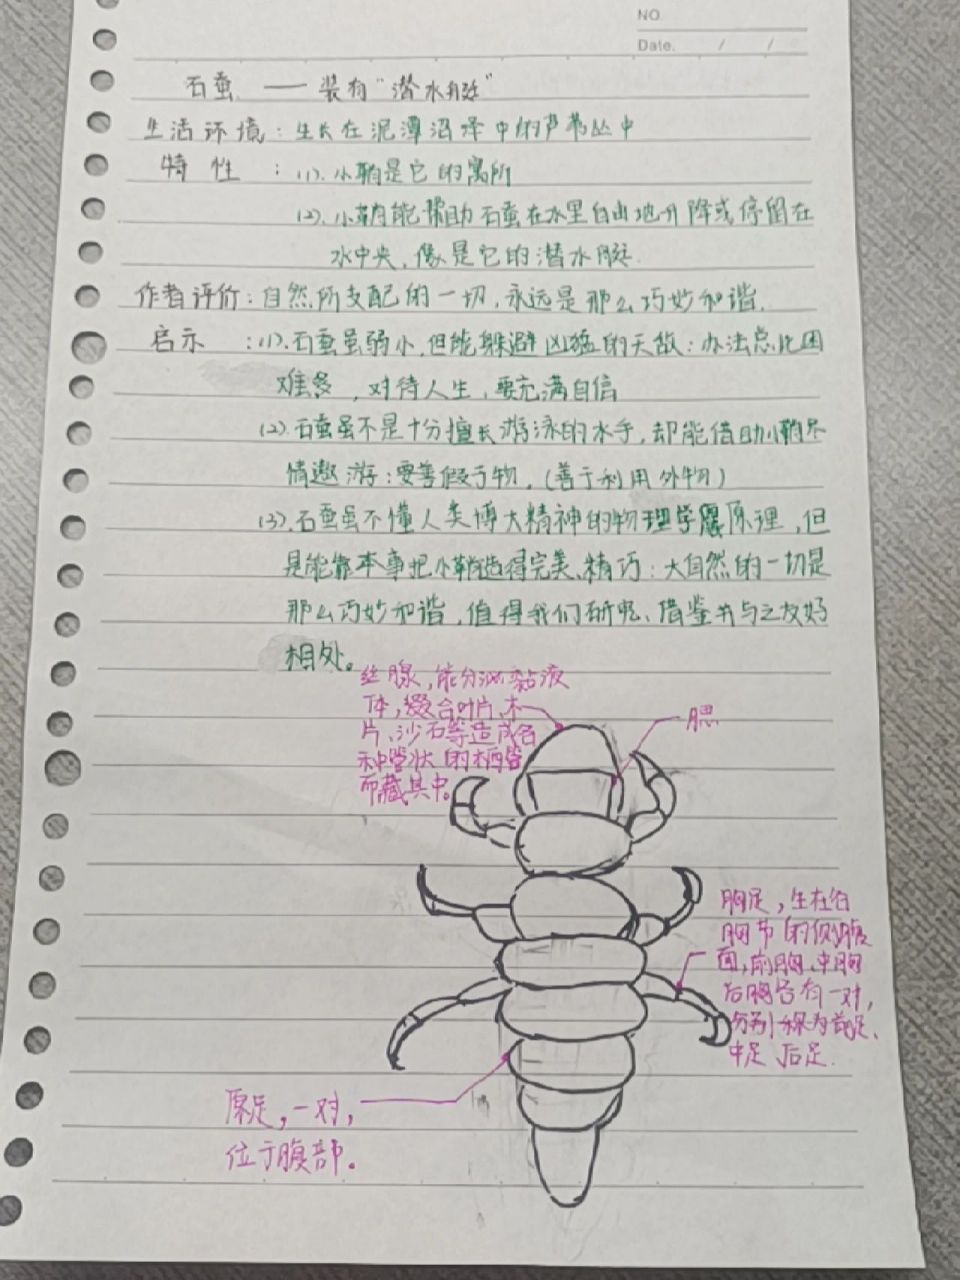 NO.
Date. / /
石蚕 —— 装有“潜水艇”
生活环境：生长在泥潭沼泽中的芦苇丛中
特性：(1).小鞘是它的寓所
(2).小鞘能帮助石蚕在水里自由地升降或停留在
水中央,像是它的潜水艇.
作者评价：自然所支配的一切,永远是那么巧妙和谐.
启示：(1).石蚕虽弱小,但能躲避凶猛的天敌：办法总比困
难多,对待人生,要充满自信
(2).石蚕虽不是十分擅长游泳的水手,却能借助小鞘尽
情遨游：要善假于物,(善于利用外物)
(3).石蚕虽不懂人类博大精神的物理学原理,但
是能靠本事把小鞘造得完美、精巧：大自然的一切是
那么巧妙和谐,值得我们研究、借鉴并与之友好
相处。
丝腺,能分泌黏液
体,缀合叶片、木
片、沙石等造成各
种管状的栖管
而藏其中。
腮
胸足,生在各
胸节的侧腹
面,前胸、中胸
后胸各有一对,
分别称为前足、
中足、后足.
原足,一对,
位于腹部。